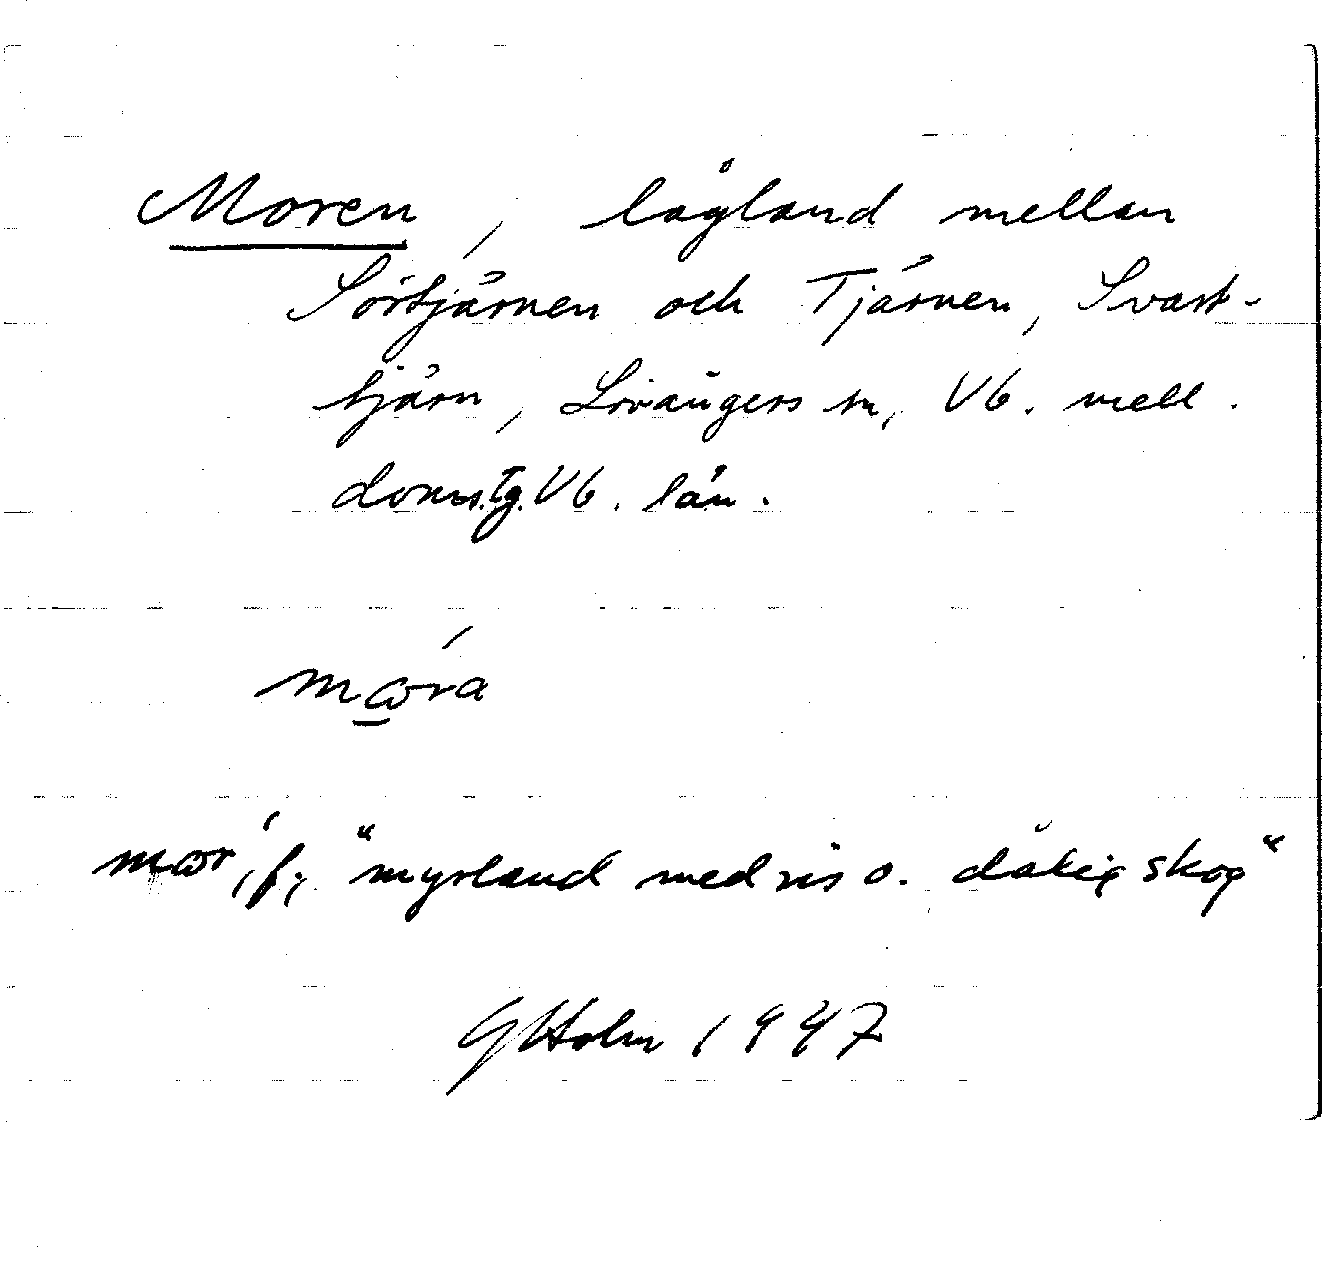 Moren, lågland mellan
Sörtjärnen och Tjärnen, Svart-
tjärn, Lövångers sn, Vb. mell.
doms.tg. Vb. län.
mɷ́ra
mɷ́r, f; "myrland med ris o. dålig skog"
G Holm 1947